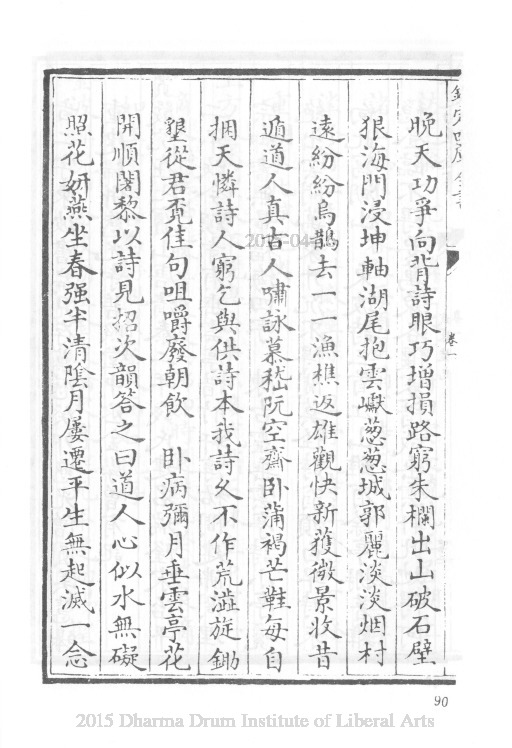 晚天功爭向背詩眼巧增損路窮朱欄出山破石壁
狠海門浸坤軸湖尾抱雲巘葱葱城郭麗淡淡烟村
遠紛紛烏鵲去一一漁樵返雄觀快新獲微景收昔
遁道人真古人嘯詠慕嵇阮空齋卧蒲褐芒鞋每自
捆天憐詩人窮乞與供詩本我詩久不作荒澁旋鋤
墾從君覓佳句咀嚼廢朝飲 卧病彌月垂雲亭花
開順闍黎以詩見招次韻答之曰道人心似水無礙
照花妍燕坐春强半清陰月屢遷平生無起滅一念
卷一
90
2015 Dharma Drum Institute of Liberal Arts